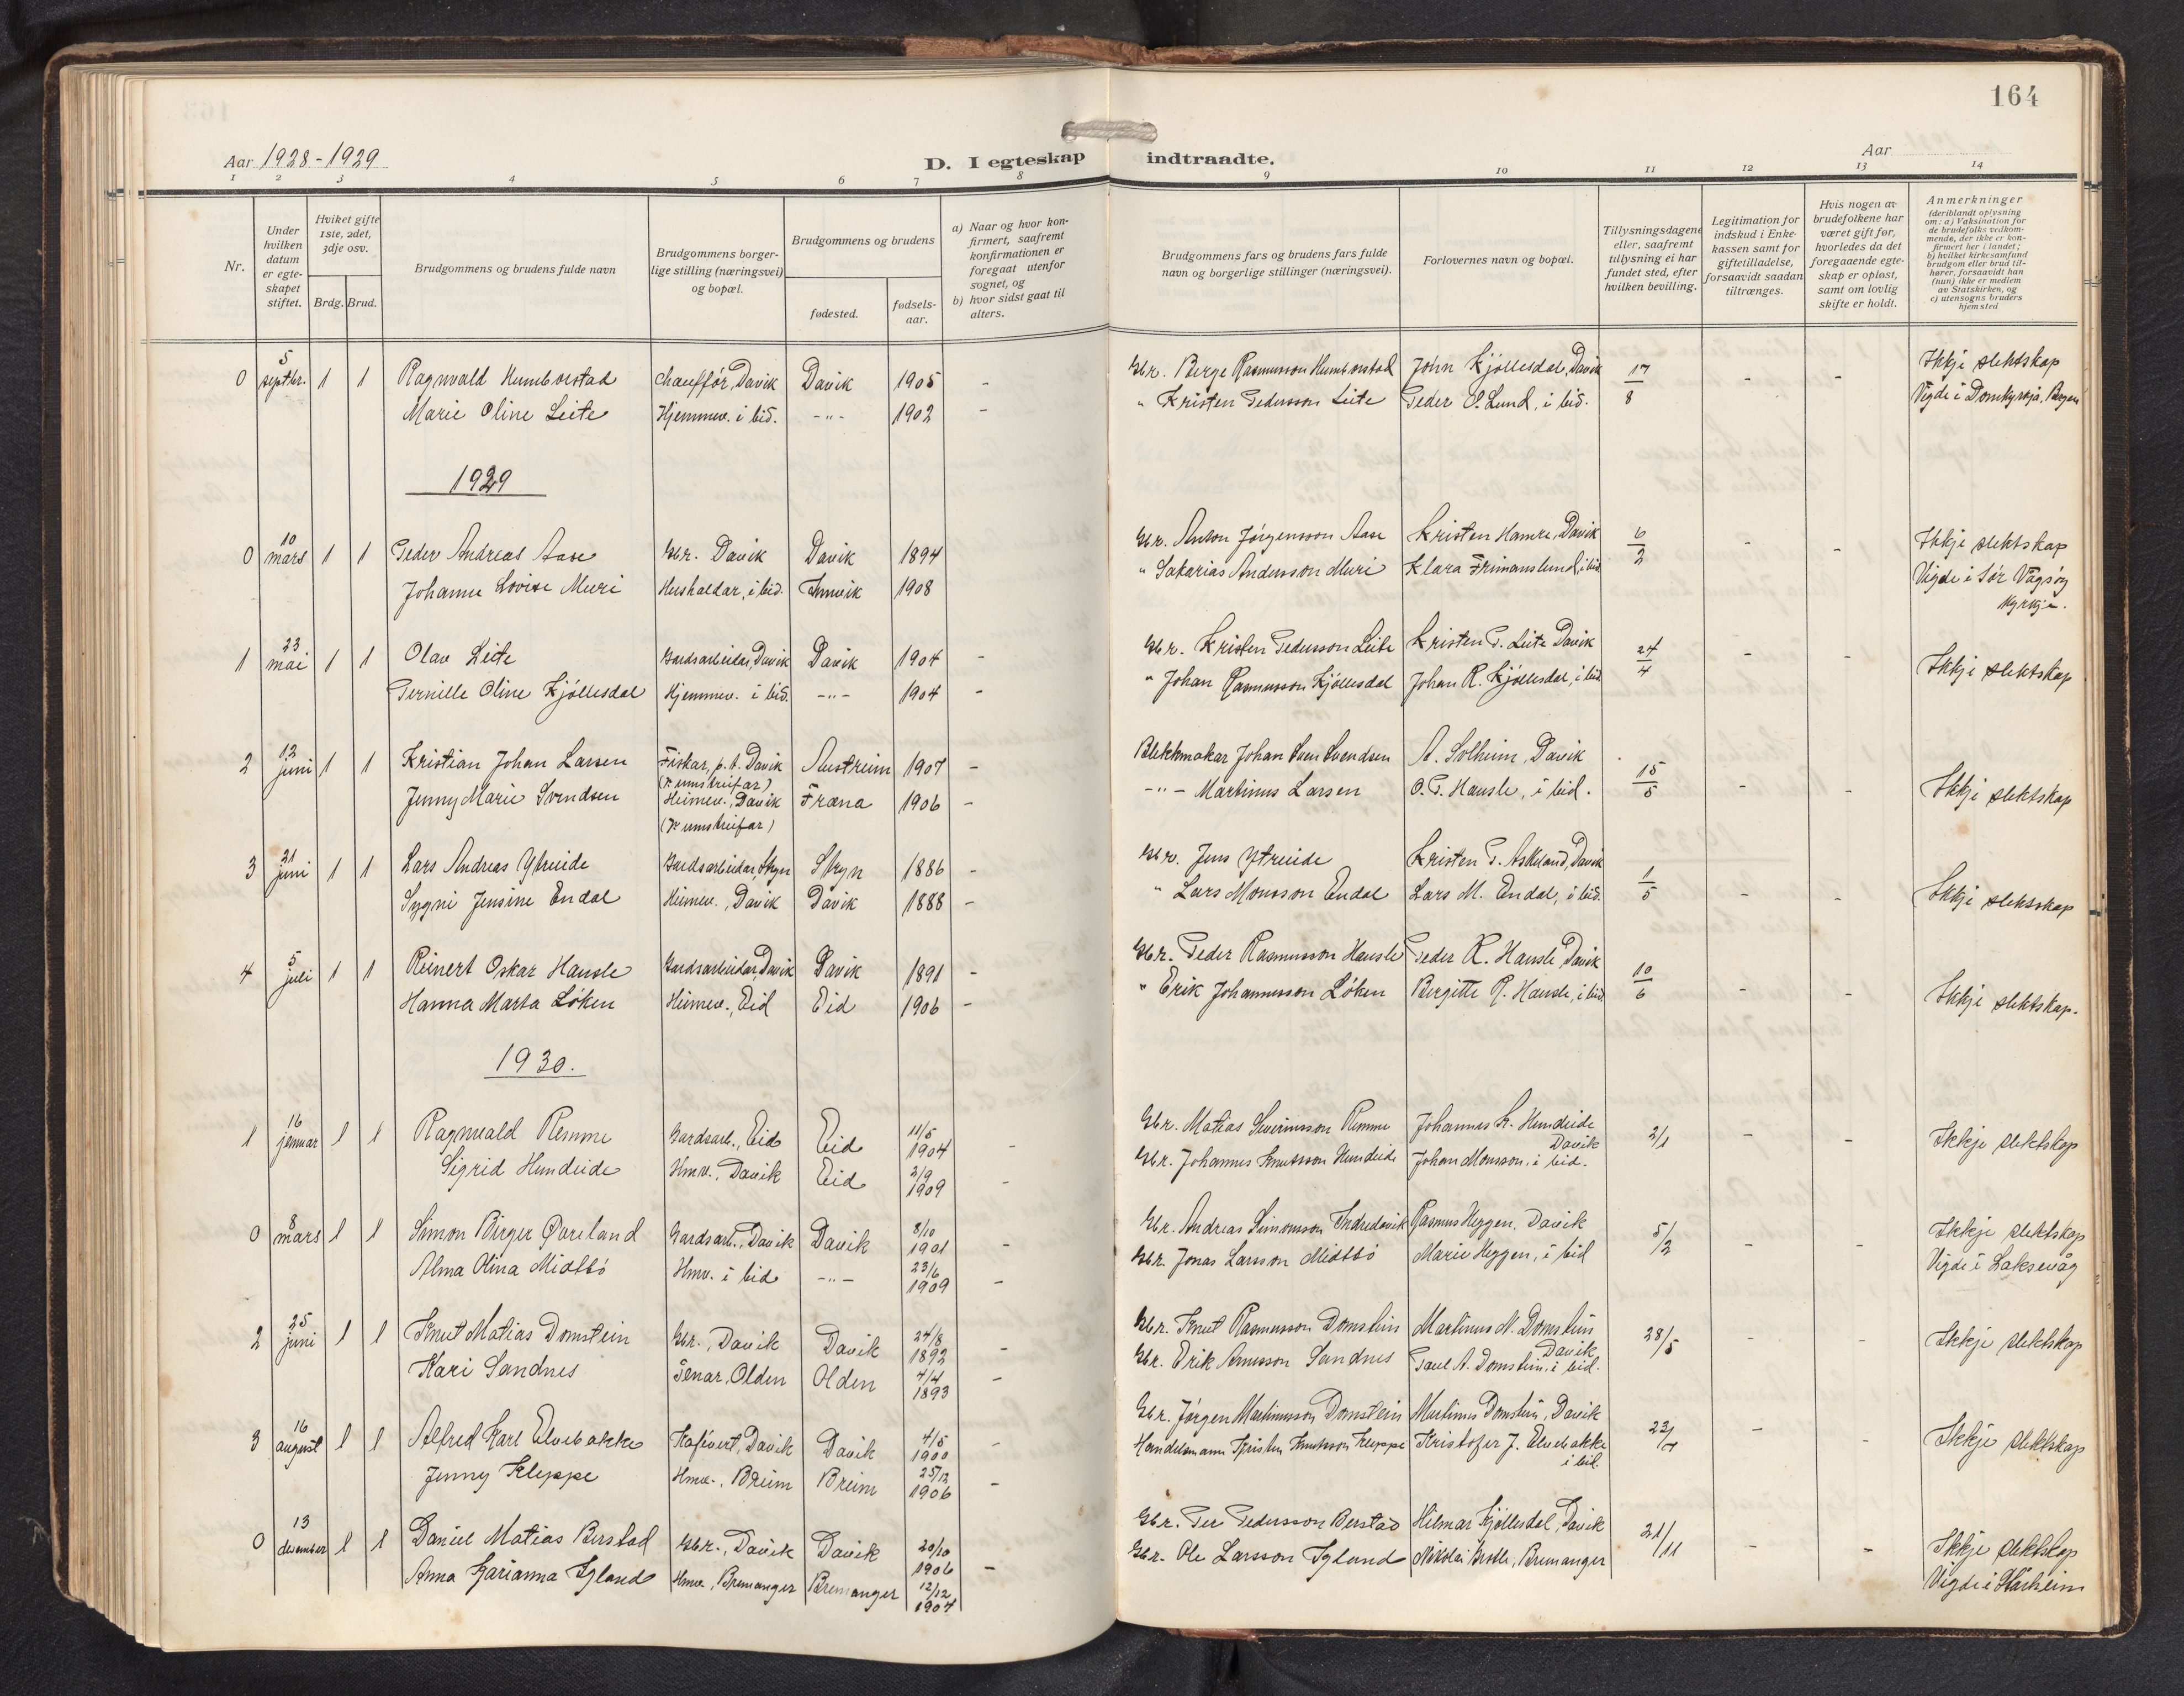 164
Aar 1928-1929
D. I egteskap indtraadte.
Aar
1 2 3 4 5 6 7 8 9 10 11 12 13 14
Nr.
Under hvilken datum er egteskapet stiftet.
Hviket gifte 1ste, 2det, 3dje osv.
Brdg. Brud.
Brudgommens og brudens fulde navn
Brudgommens borgerlige stilling (næringsvei) og bopæl.
Brudgommens og brudens
fødested.
fødselsaar.
a) Naar og hvor konfirmert, saafremt konfirmationen er foregaat utenfor sognet, og
b) hvor sidst gaat til alters.
Brudgommens fars og brudens fars fulde navn og borgerlige stillinger (næringsvei).
Forlovernes navn og bopæl.
Tillysningsdagene eller, saafremt tillysning ei har fundet sted, efter hvilken bevilling.
Legitimation for indskud i Enkekassen samt for giftetilladelse, forsaavidt saadan tiltrænges.
Hvis nogen av brudefolkene har været gift før, hvorledes da det foregaaende egteskap er opløst, samt om lovlig skifte er holdt.
Anmerkninger (deriblandt oplysning om: a) Vaksination for de brudefolks vedkommende, der ikke er konfirmert her i landet; b) hvilket kirkesamfund brudgom eller brud tilhører, forsaavidt han (hun) ikke er medlem av Statskirken, og c) utensogns bruders hjemsted
0 5 septbr. 1 1 Ragnvald Humborstad Chauffør, Davik Davik 1905 - Gbr. Berge Rasmusson Humborstad John Kjöllesdal, Davik 17/8 - - Ikkje slektskap
Marie Oline Leite Hjemmev. i bid. -"- 1902 - " Kristen Pedersson Leite Peder O. Lund, i bid. Vigde i Domkyrkja, Bergen
1929
0 10 mars 1 1 Peder Andreas Aase Gbr. Davik Davik 1894 Gbr. Anton Jörgensson Aase Kristen Hamre, Davik 6/2 - - Ikkje slektskap
Johanne Lovise Muri Hushaldar, i bid. Innvik 1908 " Sakarias Andersson Muri Klara Frimanslund, i bid Vigde i Sör Vågsöy
kyrkje.
1 23 mai 1 1 Olav Leite Gardsarbeidar, Davik Davik 1904 - Gbr. Kristen Pedersson Leite Kristen P. Leite Davik 24/4 - - Ikkje slektskap
Pernille Oline Kjöllesdal Hjemmev. i bid. -"- 1904 - " Johan Rasmusson Kjöllesdal Johan R. Kjöllesdal, i bid
2 12 juni 1 1 Kristian Johan Larsen Fiskar, p.t. Davik Austreim 1907 - Blekkmakar Johan Sven Svendsen A. Solheim, Davik 15/5 - - Ikkje slektskap
umstreifar)
Jenny Marie Svendsen Heimev., Davik Fræna 1906 - -"- Martinus Larsen O. P. Hausle, i bid.
umstreifar)
3 21 juni 1 1 Lars Andreas Ytreeide Gardsarbeidar, Stryn Stryn 1886 - Gbr. Jens Ytreeide Kristen P. Askeland, Davik 1/5 - - Ikkje slektskap
Sygni Jensine Endal Heimev., Davik Davik 1888 - " Lars Monsson Endal Lars M. Endal, i bid.
4 5 juli 1 1 Reinert Oskar Hausle Gardsarbeidar, Davik Davik 1891 - Gbr. Peder Rasmusson Hausle Peder R. Hausle, Davik 10/6 - - Ikkje slektskap.
Hanna Marta Löken Heimev., Eid Eid 1906 - " Erik Johannesson Löken Bergitte R. Hausle, i bid.
1930.
1 16 januar 1 1 Ragnvald Remme Gardsarb., Eid Eid 11/5 1904 - Gbr. Matias Severinsson Remme Johannes K. Hundeide Davik 2/1 - - Ikkje slektskap
Sigrid Hundeide Hmv., Davik Eid 2/9 1909 - Gbr. Johannes Knutsson Hundeide Johan Monsson, i bid.
0 8 mars 1 1 Simon Birger Øvreland Gardsarb., Davik Davik 8/10 1901 - Gbr. Andreas Simonsson Indredavik Rasmus Heggen, Davik 5/2 - - Ikkje slektskap
Alma Olina Midtbö Hmv. i bid -"- 23/6 1909 - Gbr. Jonas Larsson Midtbö Marie Heggen, i bid Vigde i Laksevåg
2 25 juni 1 1 Knut Matias Domstein Gbr., Davik Davik 24/8 1892 - Gbr. Knut Rasmusson Domstein Martinus N. Domstein Davik 28/5 - - Ikkje slektskap
Kari Sandnes Tenar, Olden Olden 4/4 1893 - Gbr. Erik Arnesson Sandnes Paul A. Domstein, i bid.
3 16 august 1 1 Alfred Karl Elvebakke Kafévert, Davik Davik 4/5 1900 - Gbr. Jörgen Martinusson Domstein Martinus Domstein, Davik 22/7 - - Ikkje slektskap
Jenny Kleppe Hmv., Breim Breim 25/12 1906 - Handelsmann Kristen Knutsson Kleppe Kristofer J. Elvebakke i bid.
0 13 desember 1 1 Daniel Matias Berstad Gbr., Davik Davik 20/10 1906 - Gbr. Per Pedersson Berstad Hilmar Kjöllesdal, Davik 21/11 - - Ikkje slektskap
Anna Karianna Igland Hmv., Bremanger Bremanger 12/12 1904 Gbr. Ole Larsson Igland Nikolai Grotle, Bremanger Vigde i Stårheim